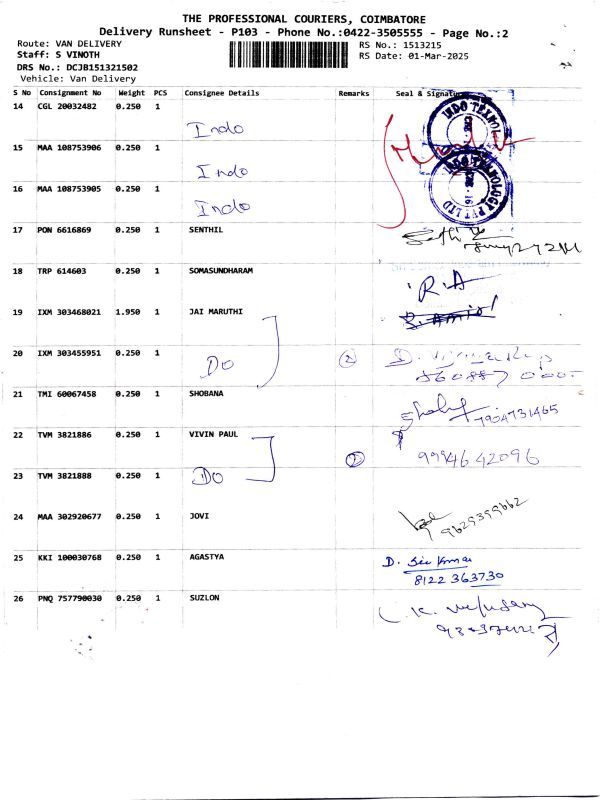 THE PROFESSIONAL COURIERS, COIMBATORE
Delivery Runsheet - P103 - Phone No.:0422-3505555 - Page No.:2
Route: VAN DELIVERY
RS No.: 1513215
Staff: S VINOTH
RS Date: 01-Mar-2025
DRS No.: DCJB151321502
Vehicle: Van Delivery
S No Consignment No Weight PCS Consignee Details Remarks Seal & Signature
14 CGL 20032482 0.250 1
Indo
15 MAA 108753906 0.250 1
Indo
16 MAA 108753905 0.250 1
Indo
17 PON 6616869 0.250 1 SENTHIL
18 TRP 614603 0.250 1 SOMASUNDHARAM
R.A
19 IXM 303468021 1.950 1 JAI MARUTHI
20 IXM 303455951 0.250 1
Do 2
21 TMI 60067458 0.250 1 SHOBANA
7904731465
22 TVM 3821886 0.250 1 VIVIN PAUL
2 9994642096
23 TVM 3821888 0.250 1
Do
24 MAA 302920677 0.250 1 JOVI
9629399662
25 KKI 100030768 0.250 1 AGASTYA
D. Siv Kumar
8122 363730
26 PNQ 757790030 0.250 1 SUZLON